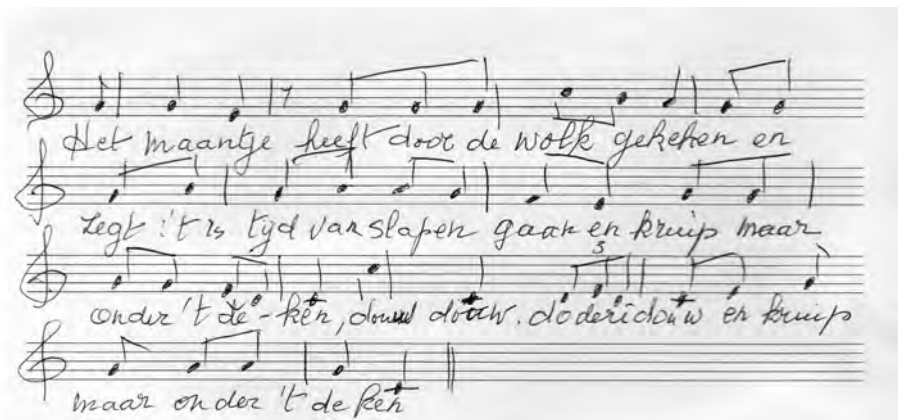 Het maantje heeft door de wolk gekeken en
zegt : 't is tyd van slapen gaan en kruip maar
3
onder 't de-ken, douw douw. doderidouw en kruip
maar onder 't de ken